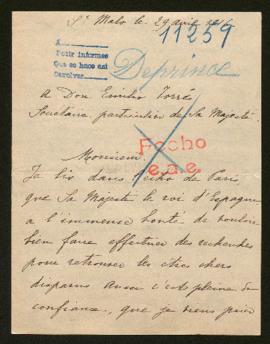 St Malo le 29 avril
11259
A
Pedir informes
Que se hace así
Devolver
Deprince
A Don Emilio Torrés
Secrétaire particulier de Sa Majesté
Fecho
Monsieur
Je lis dans l'écho de Paris
que Sa Majesté le roi d'Espagne
a l'immense bonté de vouloir
bien faire effectuer des recherches
pour retrouver les êtres chers
disparus Aussi c'est pleine de
confiance, que je viens prier